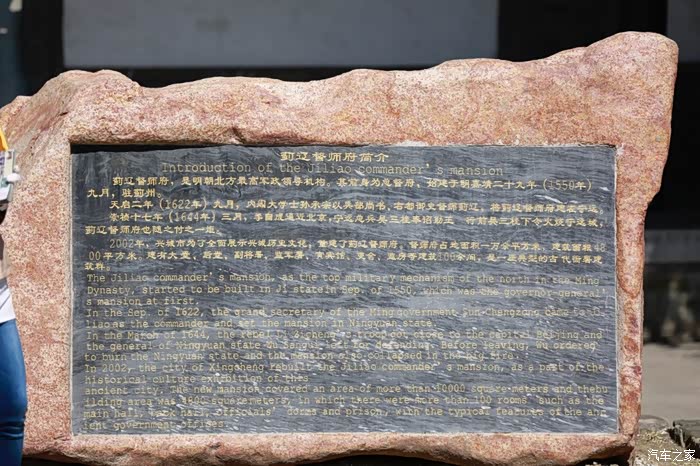 蓟辽督师府简介
Introduction of the Jiliao commander's mansion
蓟辽督师府，是明朝北方最高军政领导机构。其前身为总督府，始建于明嘉靖二十九年（1550年）
九月，驻蓟州。
天启二年（1622年）九月，内阁大学士孙承宗以兵部尚书，右都御史督师蓟辽，将蓟辽督师府建在宁远。
崇祯十七年（1644年）三月，李自成逼近北京，宁远总兵吴三桂奉诏勤王，行前吴三桂下令火烧宁远城，
蓟辽督师府也随之付之一炬。
2002年，兴城市为了全面展示兴城历史文化，重建了蓟辽督师府，督师府占地面积一万余平方米，建筑面积48
00平方米，建有大堂，后堂，副将署，监军署，
100余间，是一座典型的古代衙署建
筑群。
The Jiliao commander's mansion, as the top military mechanism of the north in the Ming
Dynasty, started to be built in Ji state in Sep. of 1550, which was the governor general'
s mansion at first.
In the Sep. of 1622, the grand secretary of the Ming government Sun Chengzong came to
liao as the commander and set the mansion in Ningyuan state.
In the March of 1644, the rebel Li Zicheng's troop got close to the capital Beijing and
the general of Ningyuan state Wu Sangui left for defending. Before leaving, Wu ordered
to burn the Ningyuan state and the mansion also collapsed in the big fire.
In 2002, the city of Xingcheng rebuilt the Jiliao commander's mansion, as a part of the
historical culture exhibition of the
ancient city. The new mansion covered an area of more than 10000 square-meters and thebu
ilding area was 4800 squaremeters, in which there were more than 100 rooms such as the
main hall, back hall, officials' dorms and prison, with the typical features of the anc
ient government offices.
汽车之家